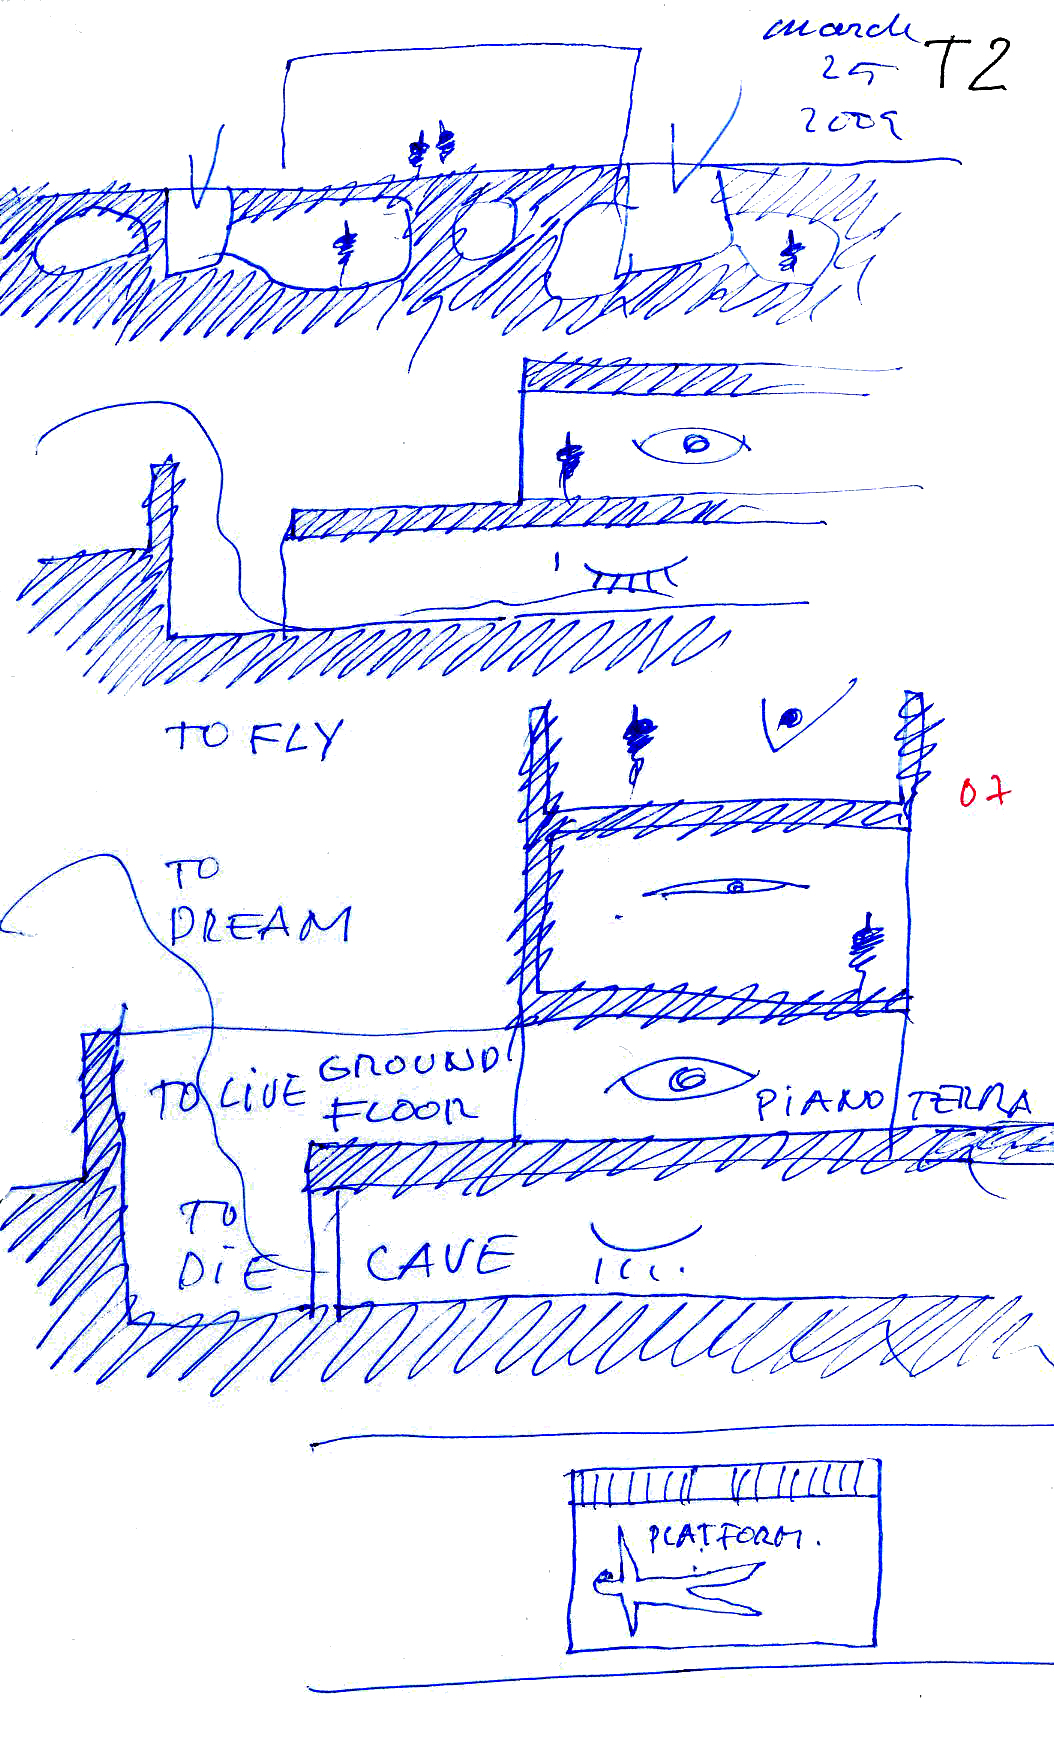 march
25
2009
T2
TO FLY
07
TO
DREAM
TO LIVE
GROUND
FLOOR
PIANO TERRA
TO
DIE
CAVE
PLATFORM.